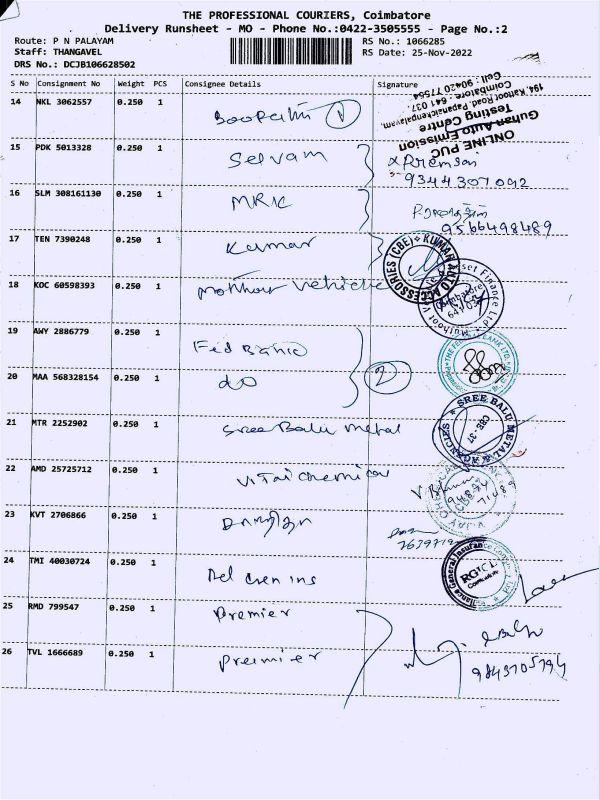 THE PROFESSIONAL COURIERS, Coimbatore
Delivery Runsheet - MO - Phone No.:0422-3505555 - Page No.:2
Route: P N PALAYAM RS No.: 1066285
Staff: THANGAVEL RS Date: 25-Nov-2022
DRS No.: DCJB106628502
S No Consignment No Weight PCS Consignee Details Signature
14 NKL 3062557 0.250 1 Boopathi 1
ONLINE PUC
Guhan Auto Emission
Testing Centre
194, Kattoor Road, Papanaickenpalayam,
Coimbatore - 641 037.
Cell : 90420 77554
15 PDK 5013328 0.250 1 Selvam
9344307092
16 SLM 308161130 0.250 1 MRK
9566498489
17 TEN 7390248 0.250 1 Kumar
KUMAR AUTO ACCESSORIES (CBE)
18 KOC 60598393 0.250 1 Mothoor Vehicle
19 AWY 2886779 0.250 1 Fed Bank
20 MAA 568328154 0.250 1 do 2
21 MTR 2252902 0.250 1 Sree Balu Metal
SREE BALU METAL AGENCIES
CBE-37
22 AMD 25725712 0.250 1 Chemical
23 KVT 2706866 0.250 1
24 TMI 40030724 0.250 1
Reliance General Insurance
RGICL
25 RMD 799547 0.250 1 Premier
26 TVL 1666689 0.250 1 Premier
9843705794